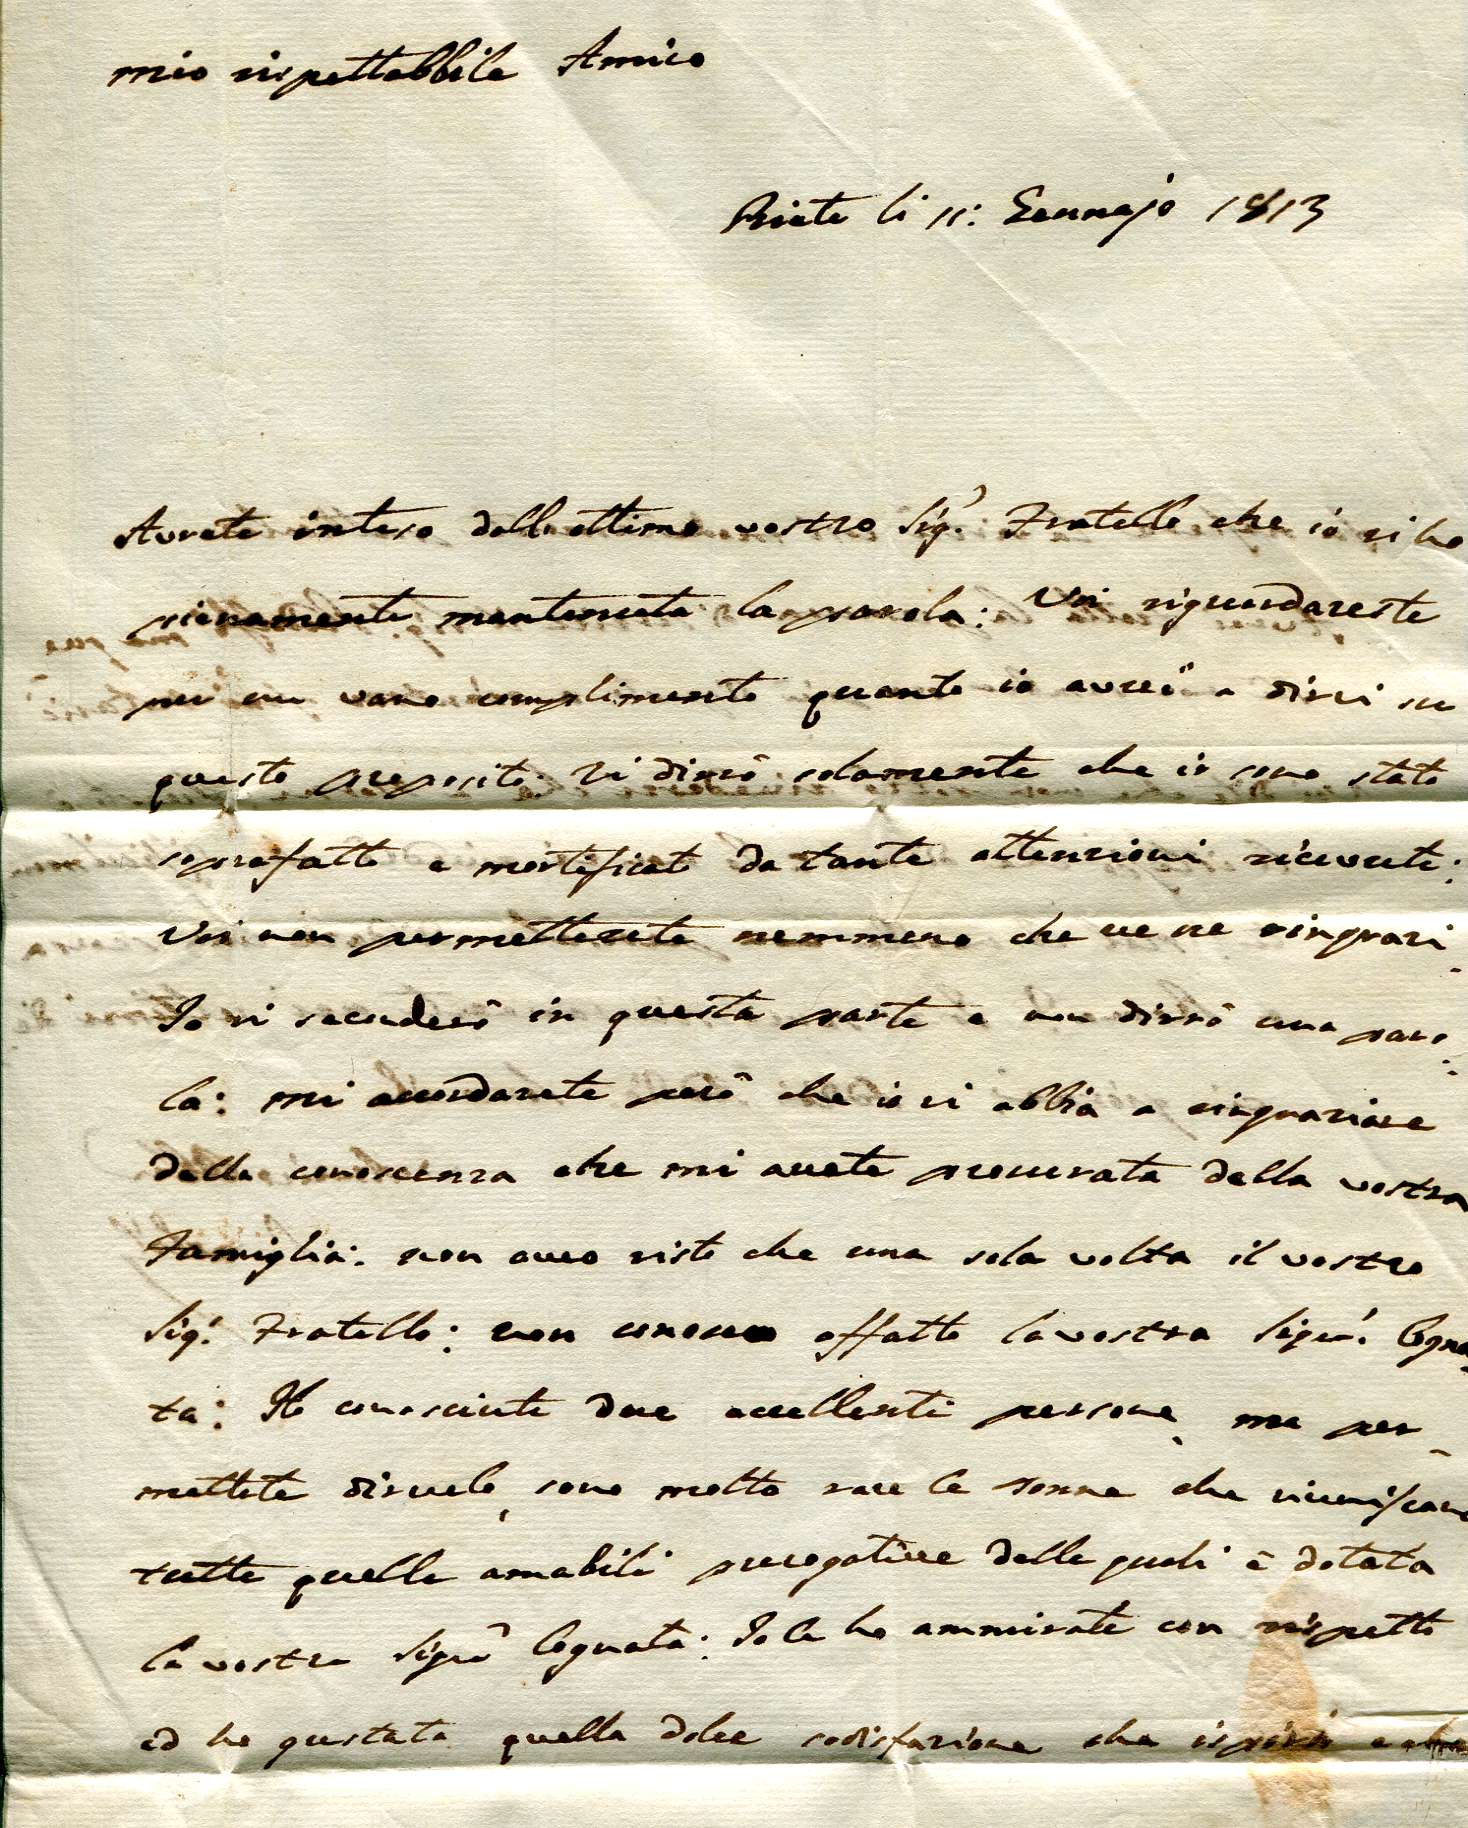 mio rispettabbile Amico
Riete li 11: Gennajo 1813
Avrete inteso dall ottimo vostro Sigr. Fratello che io vi ho
pienamente mantenuta la parola: Voi riguardareste
per un vano complimento quanto io avrei a dirvi su
questo proposito: Vi dirrò solamente che io sono stato
soprafatto e mortificato da tante attenzioni ricevute:
Voi non permetterete nemmeno che ve ne ringrazi
Io vi seconderò in questa parte e non dirrò una paro-
la: mi accordarete però che io vi abbia a ringraziare
della conoscenza che mi avete procurata della vostra
Famiglia: non avevo visto che una sola volta il vostro
Sigr. Fratello: non conoscevo affatto la vostra Sigra. Cogna-
ta: Ho conosciute due eccellenti persone, ma per-
mettete dirvelo, sono molto rare le donne che riuniscano
tutte quelle amabili prerogative delle quali è dotata
la vostra Sigra Cognata: Io le ho ammirate con rispetto
ed ho gustata quella dolce sodisfazione che